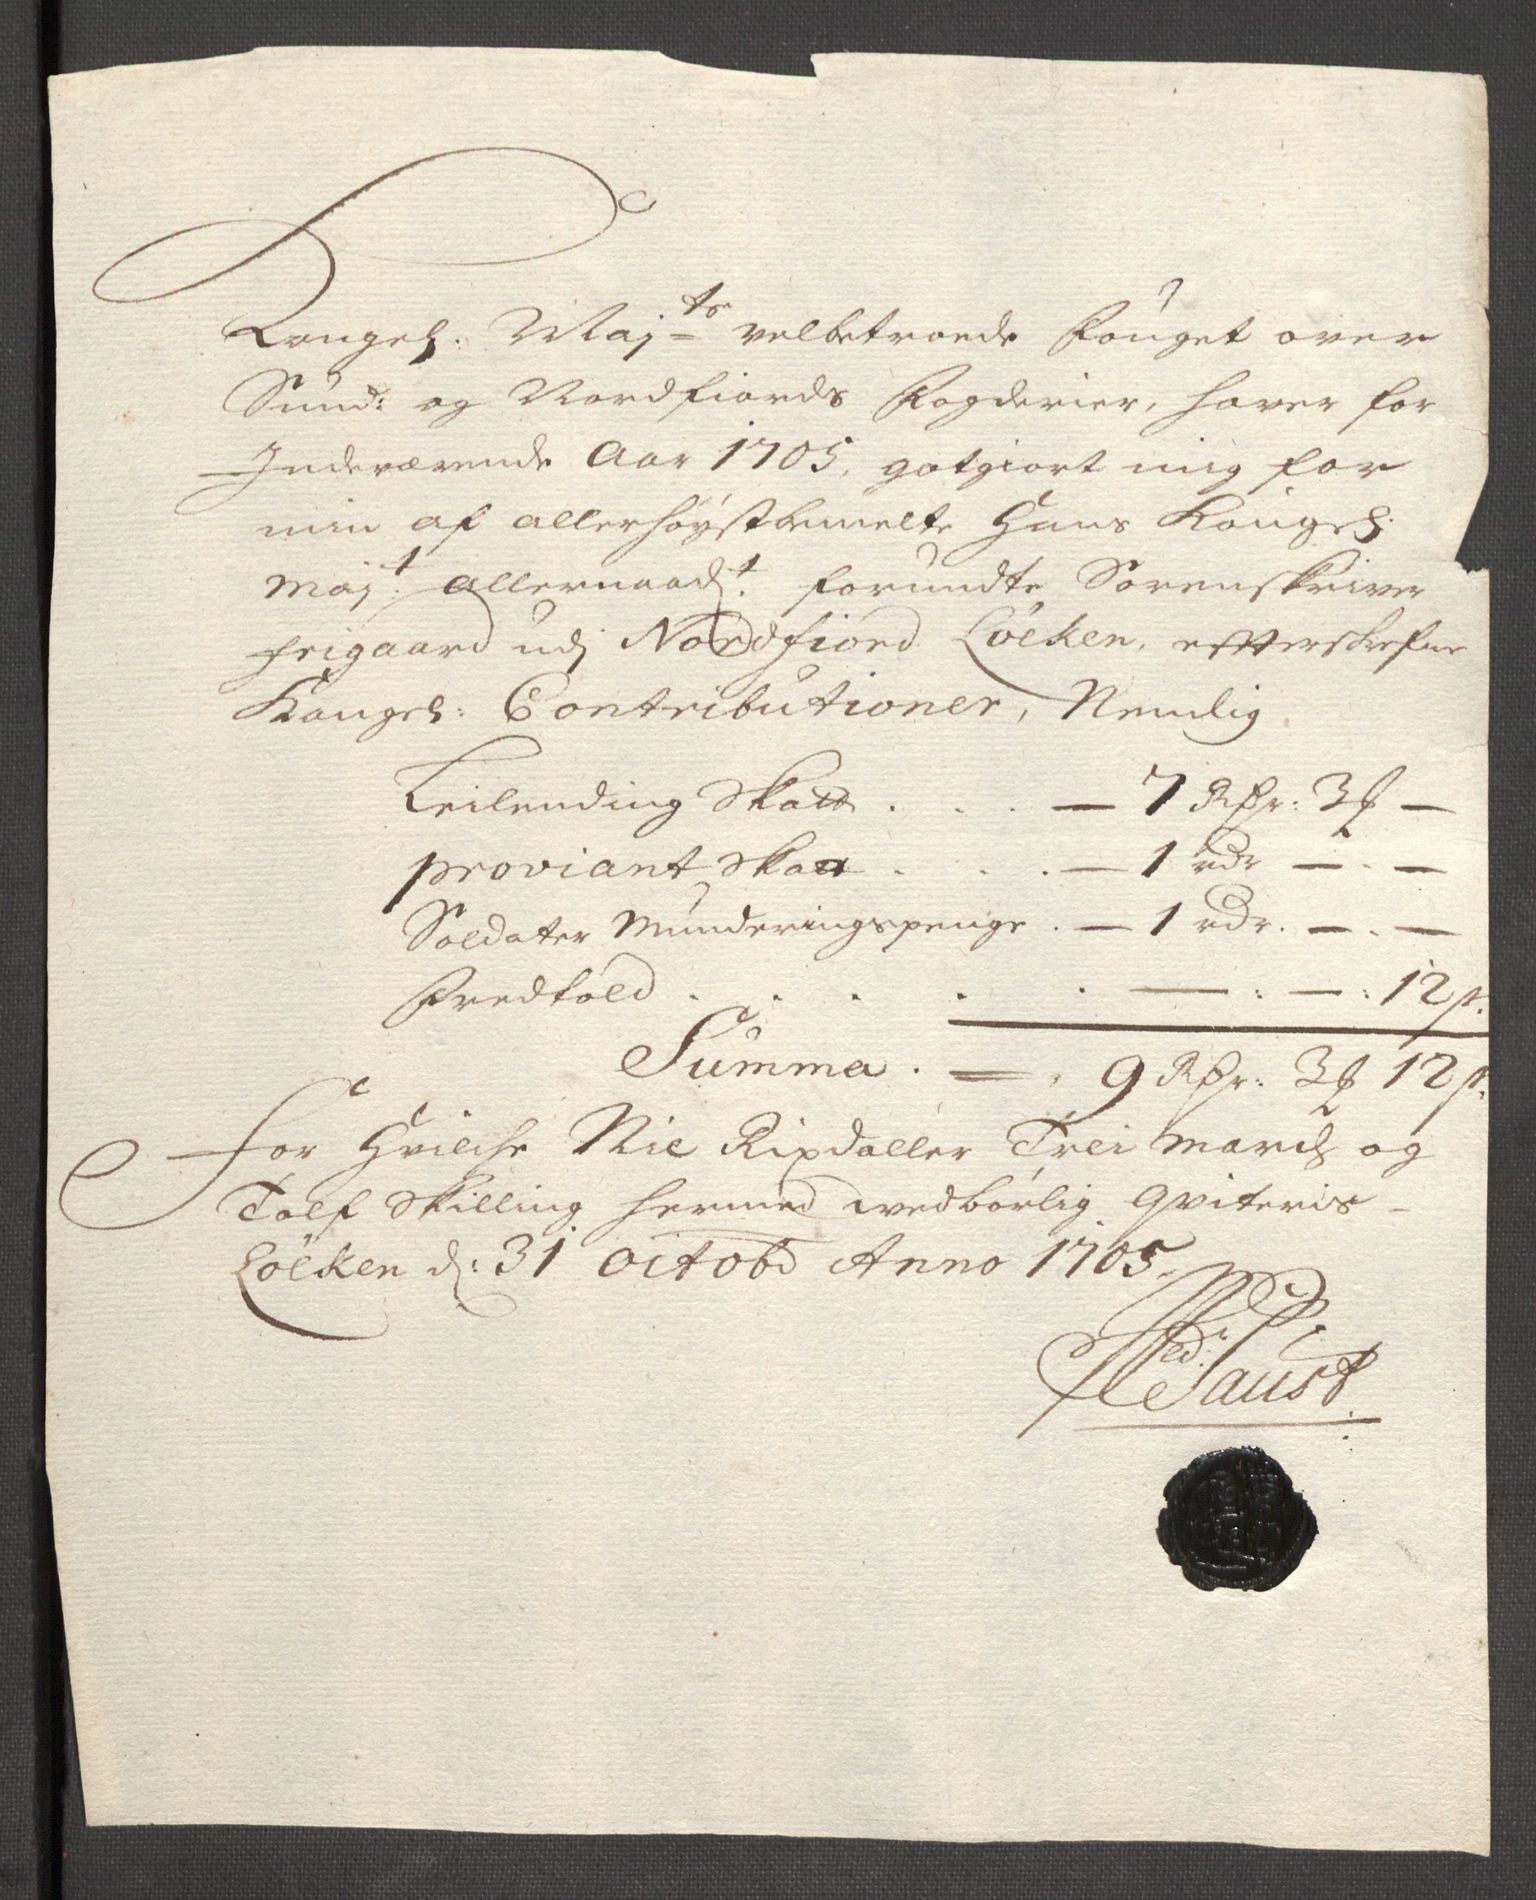 Kongel: Maj:ts velbetroede Fouget over
Sund: og Nordfiords Fogderier, haver for
Indeværende Aar 1705, gotgiort mig for
min af allerhøystbemelte Hans Kongel:
Maj:t allernaad:t forundte Sorenskriver
frigaard udj Nordfiord Löcken, effterskrefne
Kongel: Contributioner, Nemlig
Leilending Skatt . . . — 7 Rdr: 3 ꝭ —
proviant Skatt . . . — 1 rdr — . —
Soldater Munderingspenge . — 1 rdr. — . —
Fredtold . . . . . . — : — : 12 s.
Summa . — . 9 Rdr: 3 ꝭ 12 s.
For Hvilche Nie Rixdaller Trei March og
Tolf Skilling hermed vedbörlig Qviteris –
Löcken d: 31 octobr Anno 1705.
Fed: Faust